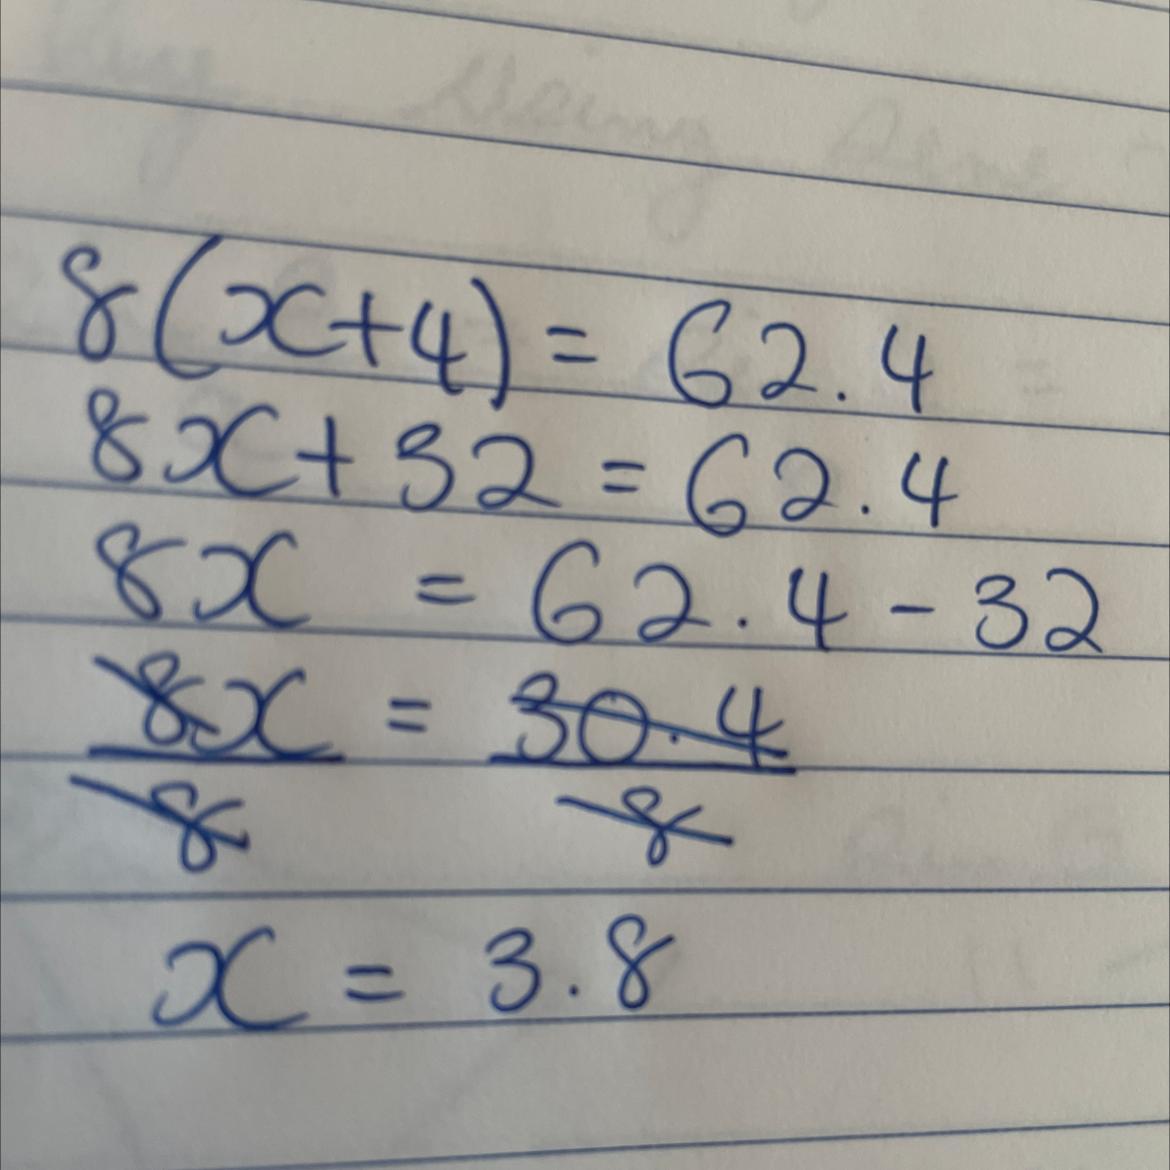 8(x+4) = 62.4
8x + 32 = 62.4
8x = 62.4 - 32
8x/8 = 30.4/8
x = 3.8